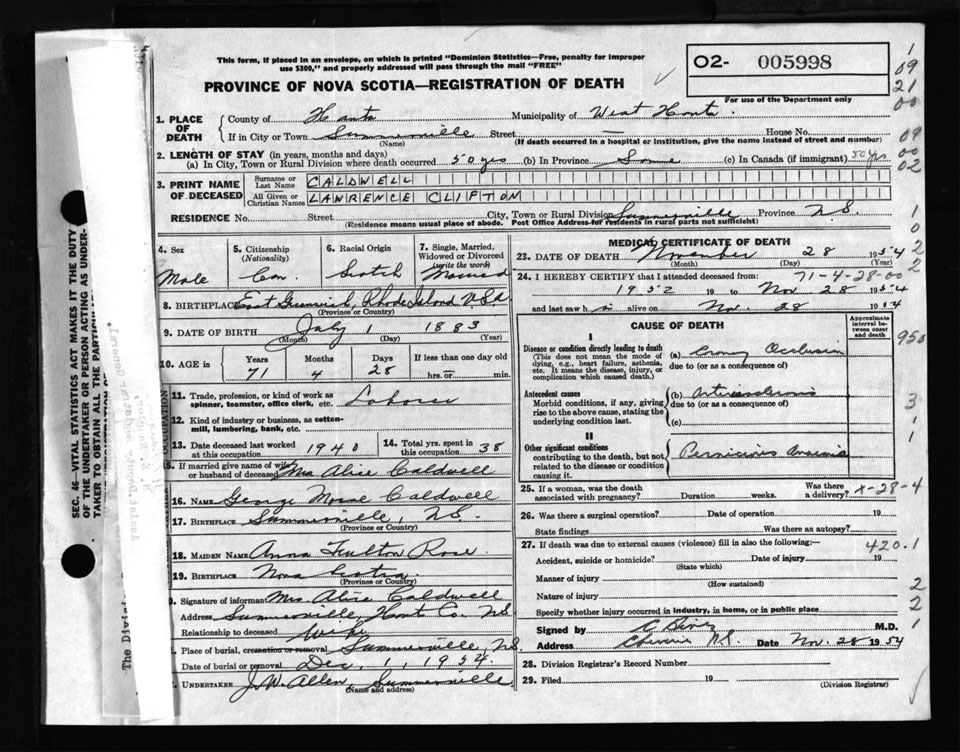 This form, if placed in an envelope, on which is printed "Dominion Statistics—Free, penalty for improper
use $300," and properly addressed will pass through the mail "FREE"
O2- 005998
For use of the Department only
PROVINCE OF NOVA SCOTIA—REGISTRATION OF DEATH
1. PLACE OF DEATH
County of Hants Municipality of West Hants.
If in City or Town Summerville Street — House No.
(Name) (If death occurred in a hospital or institution, give the name instead of street and number)
2. LENGTH OF STAY (in years, months and days)
(a) In City, Town or Rural Division where death occurred 50 yrs (b) In Province Same (c) In Canada (if immigrant) 50 yrs
3. PRINT NAME OF DECEASED
Surname or Last Name CALDWELL
All Given or Christian Names LAWRENCE CLIFTON
RESIDENCE No. Street City, Town or Rural Division Summerville Province N.S.
(Residence means usual place of abode. Post Office Address for residents in rural parts not sufficient)
4. Sex Male
5. Citizenship (Nationality) Can.
6. Racial Origin Scotch
7. Single, Married, Widowed or Divorced (write the word) Married
8. BIRTHPLACE East Greenwich, Rhode Island U.S.A
(Province or Country)
9. DATE OF BIRTH July 1 1883
(Month) (Day) (Year)
10. AGE in Years Months Days If less than one day old
71 4 28 hrs. or min.
11. Trade, profession, or kind of work as spinner, teamster, office clerk, etc. Laborer
12. Kind of industry or business, as cotton-mill, lumbering, bank, etc.
13. Date deceased last worked at this occupation 1940
14. Total yrs. spent in this occupation 38
15. If married give name of wife or husband of deceased Mrs Alice Caldwell
16. NAME George Caldwell
17. BIRTHPLACE Summerville, N.S.
(Province or Country)
18. MAIDEN NAME Anna Fulton Rose.
19. BIRTHPLACE Nova Scotia
(Province or Country)
Signature of informant Mrs. Alice Caldwell
Address Summerville, Hants Co. N.S.
Relationship to deceased Wife
Place of burial, cremation or removal Summerville, N.S.
Date of burial or removal Dec. 1, 1954.
UNDERTAKER J. W. Allen, Summerville
(Name and address)
MEDICAL CERTIFICATE OF DEATH
23. DATE OF DEATH November 28 1954
(Month) (Day)
24. I HEREBY CERTIFY that I attended deceased from: 71-4-28-00
1952 19 to Nov 28 1954
and last saw h alive on Nov. 28 1954
CAUSE OF DEATH
Approximate interval between onset and death
I
Disease or condition directly leading to death
(This does not mean the mode of dying, e.g., heart failure, asthenia, etc. It means the disease, injury, or complication which caused death.)
(a) Occlusion
due to (or as a consequence of)
Antecedent causes
Morbid conditions, if any, giving rise to the above cause, stating the underlying condition last.
(b)
due to (or as a consequence of)
(c)
II
Other significant conditions
contributing to the death, but not related to the disease or condition causing it.
Pernicious Anaemia
25. If a woman, was the death associated with pregnancy? Duration weeks. Was there a delivery? X-28-4
26. Was there a surgical operation? Date of operation 19
State findings Was there an autopsy?
27. If death was due to external causes (violence) fill in also the following:— 420.1
Accident, suicide or homicide? Date of injury 19
(State which)
Manner of injury
(How sustained)
Nature of injury
Specify whether injury occurred in industry, in home, or in public place
Signed by M.D.
Address N.S. Date Nov. 28 1954
28. Division Registrar's Record Number
29. Filed 19
(Division Registrar)
1
09
21
00
09
00
02
1
0
2
2
950
3
1
2
2
1
SEC. 46—VITAL STATISTICS ACT MAKES IT THE DUTY
OF THE UNDERTAKER OR PERSON ACTING AS UNDER-
TAKER TO OBTAIN ALL THE PARTICULAR